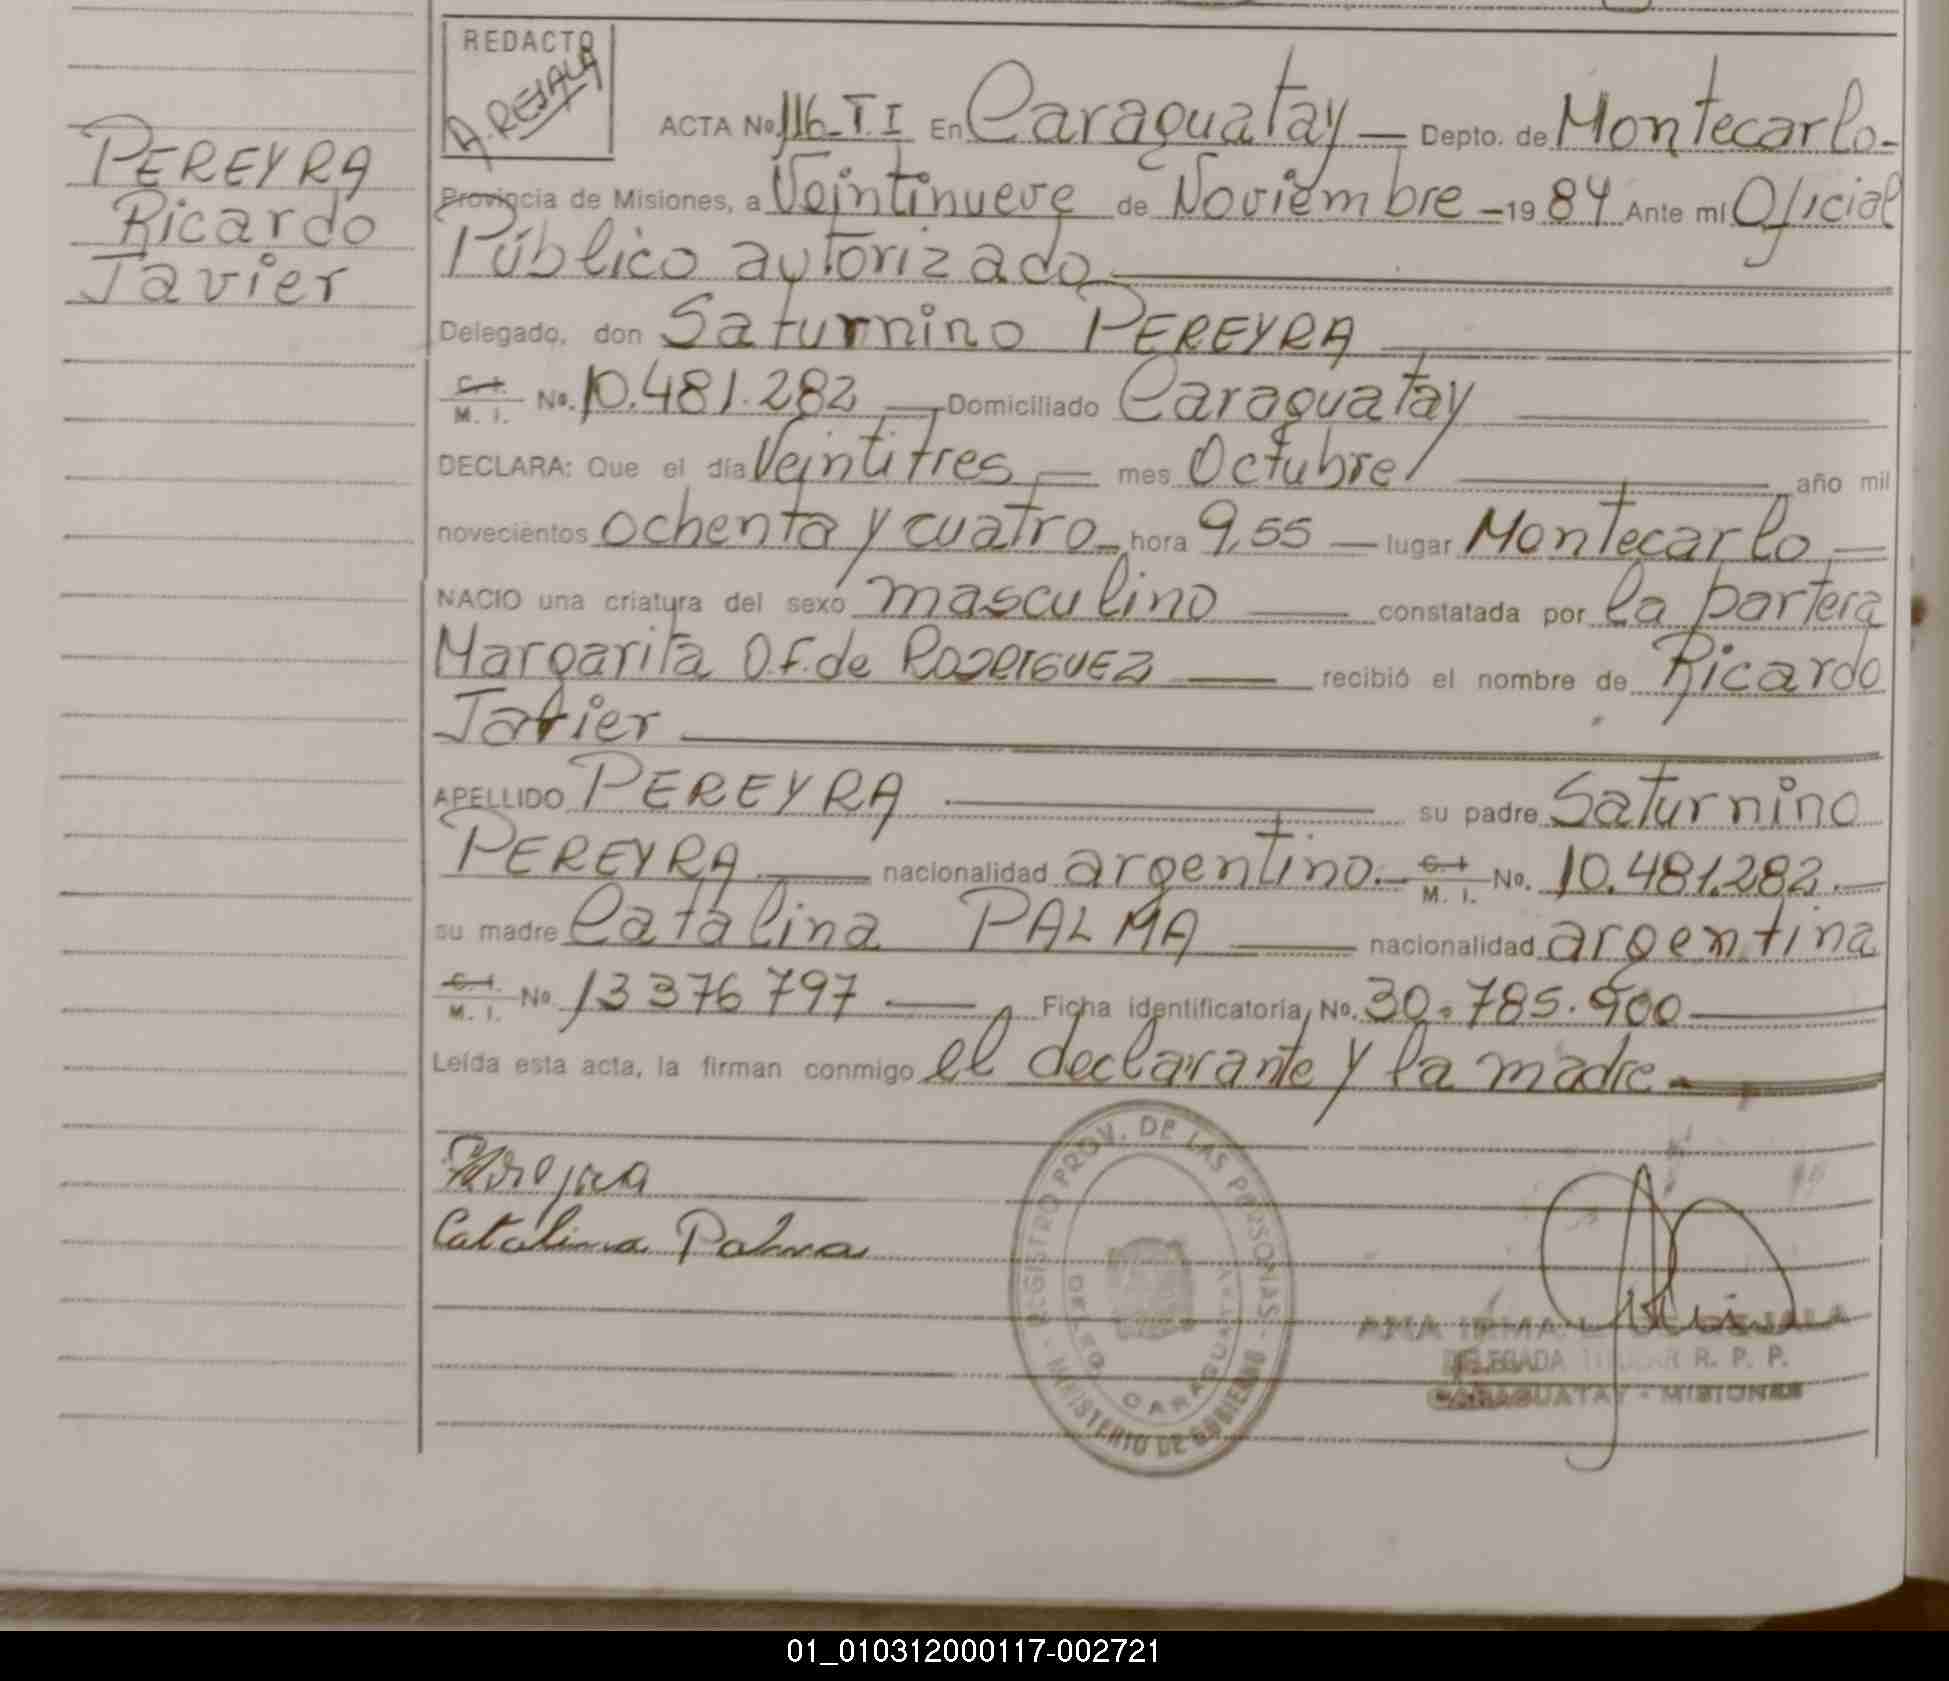 REDACTO
A. REJALA
PEREYRA
Ricardo
Javier
ACTA No. 116-T.I En Caraguatay — Depto. de Montecarlo-
Provincia de Misiones, a Veintinueve de Noviembre - 19 84 Ante mi Oficial
Público autorizado
Delegado, don Saturnino PEREYRA
C. I. M. I. No. 10.481.282 — Domiciliado Caraguatay
DECLARA: Que el día Veintitres — mes Octubre año mil
novecientos ochenta y cuatro - hora 9,55 — lugar Montecarlo —
NACIO una criatura del sexo masculino — constatada por la partera
Margarita O.F. de RODRIGUEZ — recibió el nombre de Ricardo
Javier
APELLIDO PEREYRA su padre Saturnino
PEREYRA — nacionalidad argentino. - C. I. M. I. No. 10.481.282. —
su madre Catalina PALMA — nacionalidad argentina
C. I. M. I. No. 13 376 797 — Ficha identificatoria, No. 30.785.900
Leída esta acta, la firman conmigo el declarante y la madre.
Catalina Palma
REGISTRO PROV. DE LAS PERSONAS - MINISTERIO DE GOBIERNO
DELEG. CARAGUATAY
ANA IRMA REJALA
DELEGADA TITULAR R. P. P.
CARAGUATAY - MISIONES
01_010312000117-002721